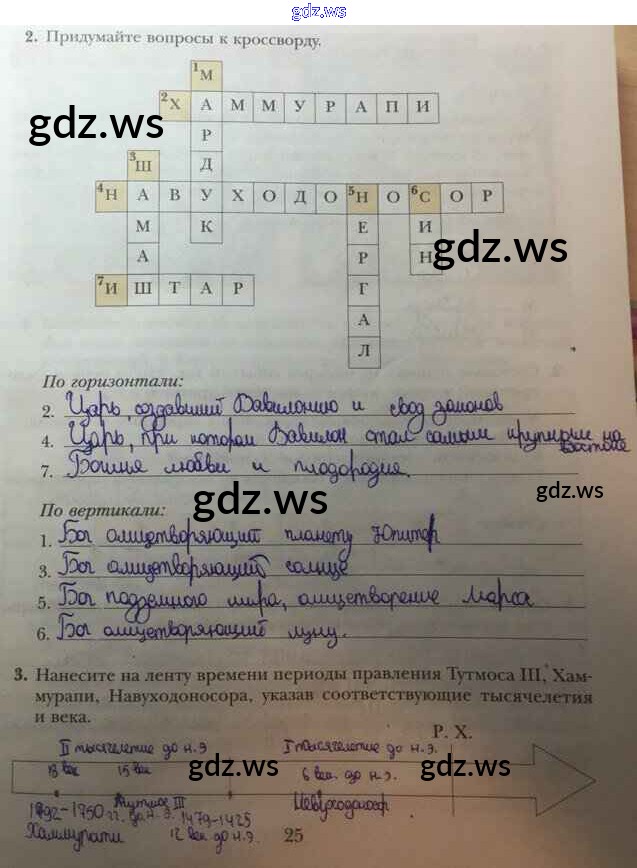 gdz.ws
2. Придумайте вопросы к кроссворду.
1М
2ХАММУРАПИ
Р
3Ш Д
4НАВУХОДО5НО6СОР
М К Е И
А Р Н
7ИШТАР Г
А
Л
gdz.ws
gdz.ws
По горизонтали:
2. Царь, создавший Вавилонию и свод законов
4. Царь, при котором Вавилон стал самым крупным на
востоке
7. Богиня любви и плодородия.
gdz.ws
gdz.ws
По вертикали:
1. Бог олицетворяющий планету Юпитер
3. Бог олицетворяющий солнце
5. Бог подземного мира, олицетворение Марса
6. Бог олицетворяющий луну.
3. Нанесите на ленту времени периоды правления Тутмоса III, Хам-
мурапи, Навуходоносора, указав соответствующие тысячелетия
и века.
Р. Х.
II тысячелетие до н.э I тысячелетие до н.э.
18 век 15 век 6 век до н.э.
gdz.ws gdz.ws
1792-1750 гг. до н.э. Тутмос III 1479-1425 Навуходоносор
Хаммурапи 12 век до н.э. 25
gdz.ws